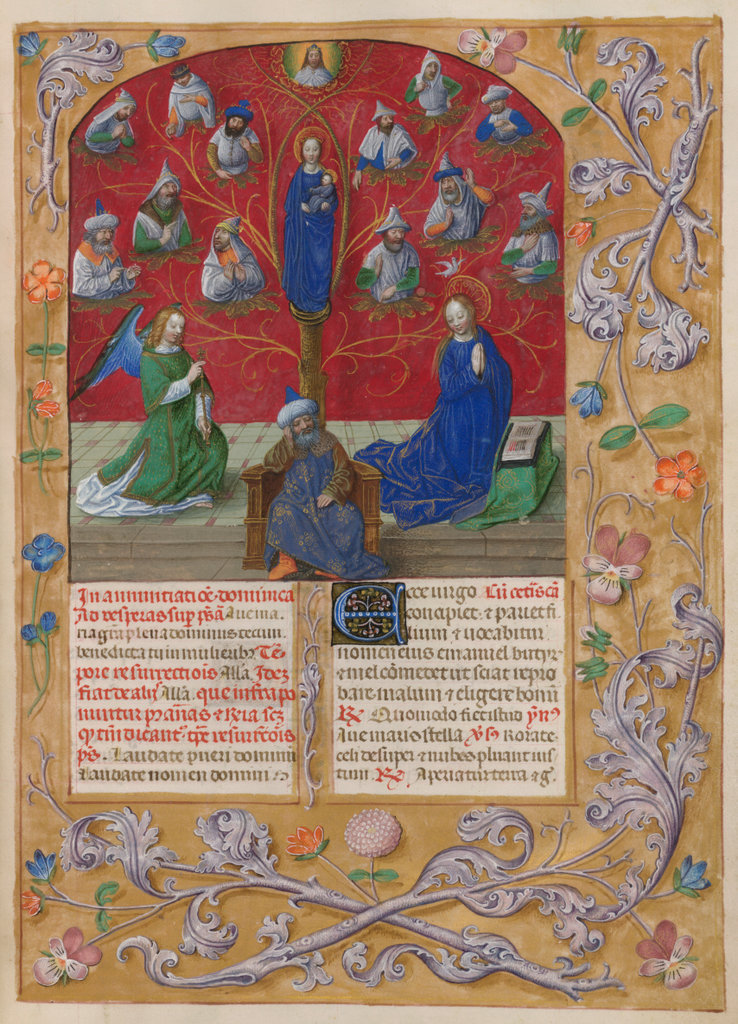 In annuntiatiōe dominica
Ad vesperas sup psā Aue ma
ria gra plena dominus tecum
benedicta tu in mulieribus Tē
pore resurrectiōis Alla
fiat de aliis Alla. que infra po
nuntur
q tūi dicant. tpe resurrectōis
ps. Laudate pueri dominū
laudate nomen domini
Ecce uirgo Lū et iscā
concipiet et pariet fi
lium et uocabitur
nomen eius emanuel butyr
et mel comedet ut sciat repro
bare malum et eligere bonū
R Quomodo fiet istud ymn
Aue maris stella Vs Rorate
celi desuper et nubes pluant ius
tum. R Aperiatur terra et g